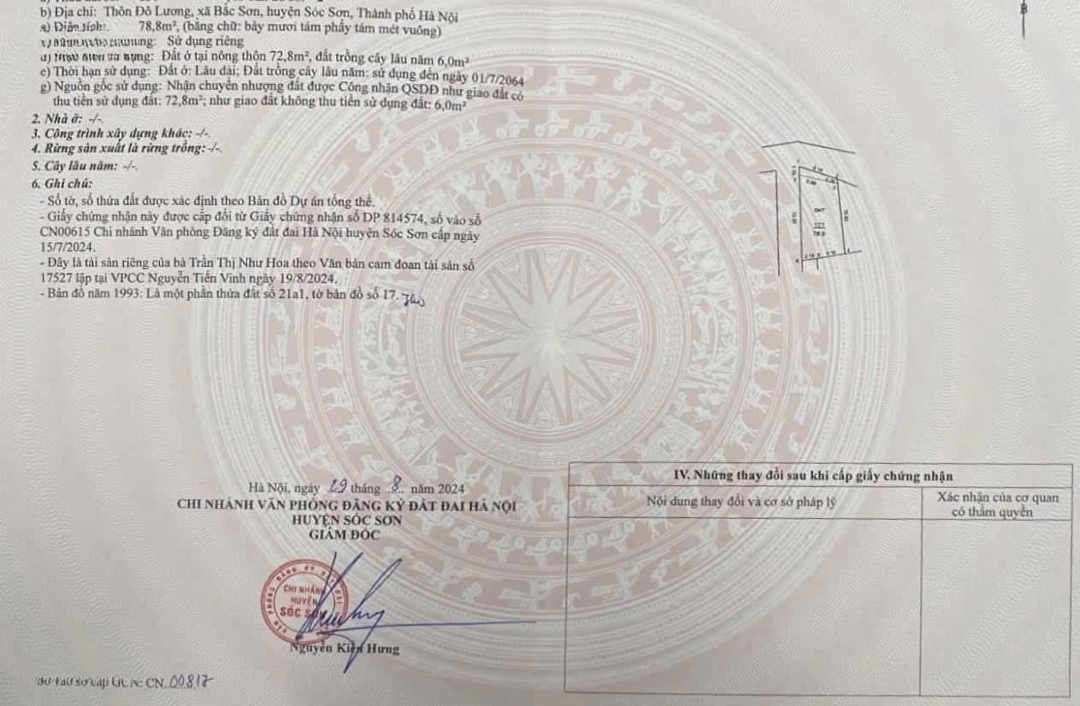 b) Địa chỉ: Thôn Đô Lương, xã Bắc Sơn, huyện Sóc Sơn, Thành phố Hà Nội
78,8m², (bằng chữ: bảy mươi tám phẩy tám mét vuông)
Sử dụng riêng
Đất ở tại nông thôn 72,8m², đất trồng cây lâu năm 6,0m²
e) Thời hạn sử dụng: Đất ở: Lâu dài; Đất trồng cây lâu năm: sử dụng đến ngày 01/7/2064
g) Nguồn gốc sử dụng: Nhận chuyển nhượng đất được Công nhận QSDĐ như giao đất có
thu tiền sử dụng đất: 72,8m²; như giao đất không thu tiền sử dụng đất: 6,0m²
2. Nhà ở: -/-.
3. Công trình xây dựng khác: -/-.
4. Rừng sản xuất là rừng trồng:-/-.
5. Cây lâu năm: -/-.
6. Ghi chú:
- Số tờ, số thửa đất được xác định theo Bản đồ Dự án tổng thể.
- Giấy chứng nhận này được cấp đổi từ Giấy chứng nhận số DP 814574, số vào sổ
CN00615 Chi nhánh Văn phòng Đăng ký đất đai Hà Nội huyện Sóc Sơn cấp ngày
15/7/2024.
- Đây là tài sản riêng của bà Trần Thị Như Hoa theo Văn bản cam đoan tài sản số
17527 lập tại VPCC Nguyễn Tiến Vinh ngày 19/8/2024.
- Bản đồ năm 1993: Là một phần thửa đất số 21a1, tờ bản đồ số 17.
Hà Nội, ngày 29 tháng 8 năm 2024
CHI NHÁNH VĂN PHÒNG ĐĂNG KÝ ĐẤT ĐAI HÀ NỘI
HUYỆN SÓC SƠN
GIÁM ĐỐC
CHI NHÁNH
HUYỆN
SÓC SƠN
Nguyễn Kiên Hưng
CN.00817
IV. Những thay đổi sau khi cấp giấy chứng nhận
Nội dung thay đổi và cơ sở pháp lý
Xác nhận của cơ quan
có thẩm quyền